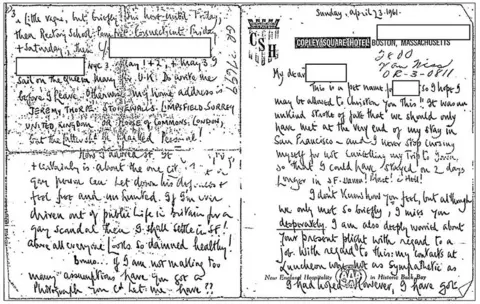 a little vague, but briefly I'm here until Friday,
then Rectory School, Pomfret, Connecticut Friday
+ Saturday, then
NYC 3. May 1 + 2, + May 3 I
sail on the Queen Mary U.K. Do write me
before I leave. Otherwise my home address is
JEREMY THORPE STONEWALLS. LIMPSFIELD. SURREY
UNITED KINGDOM OR HOUSE OF COMMONS. LONDON,
but the latter is Marked Personal!
How I adored SF. It
+ certainly is about the one city where a
gay person can let down his defences +
feel free and un hunted. If I'm ever
driven out of public life in Britain for a
gay scandal then I shall settle in SF!
above all everyone looks so damned healthy!
Bruno. If I am not making too
many assumptions have you got a
Photograph you could let me have??
Sunday, April 23. 1961.
CSH
COPLEY SQUARE HOTEL BOSTON, MASSACHUSETTS
2800
Van Ness
OR-3-0811
My dear
This is a pet name for
so I hope I
may be allowed to christen you this!! It was an
unkind stroke of fate that we should only
have met at the very end of my stay in
San Francisco – and I never stop cursing
myself for not cancelling my trip to
so that I could have stayed on 2 days
longer in SF.
I don't know how you feel, but although
we only met so briefly, I miss you
desperately. I am also deeply worried about
your present plight with regard to a
job. With regard to this: my contacts at
Luncheon were not as sympathetic as
New England Hospitality in Historic Back Bay
I had hoped. However, I have got